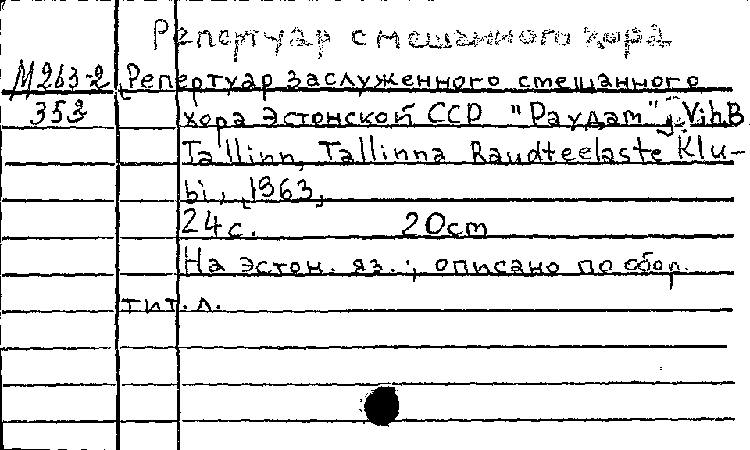 Репертуар смешанного хора
М263-2 [Репертуар заслуженного смешанного
353 хора Эстонской ССР "Раудам"]. Vih.B.
Tallinn, Tallinna Raudteelaste Klu-
bi, [1963]
24 с. 20cm
На эстон. яз.; описано по обор.
тит. л.